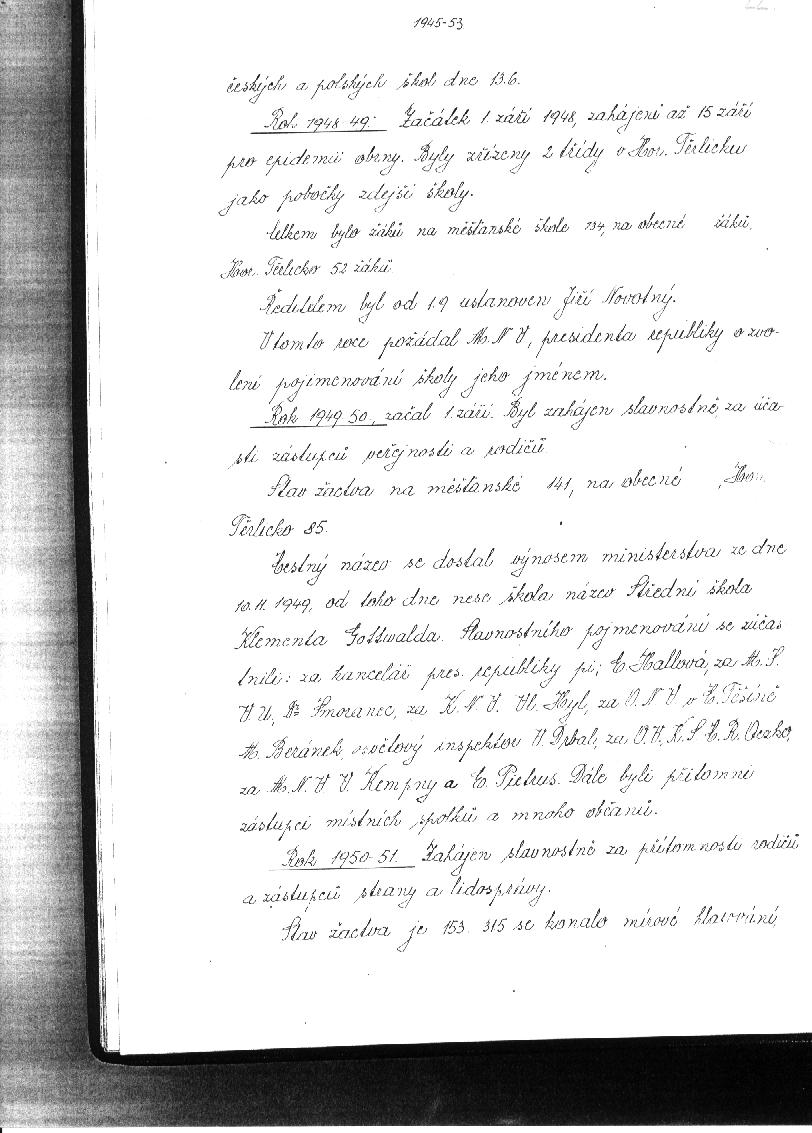 1945-53
českých a polských škol dne 13.6.
Rok 1948-49: Začátek 1. září 1948, zahájení až 15 září
pro epidemii obrny. Byly zřízeny 2 třídy v Hor. Těrlicku
jako pobočky zdejší školy.
Celkem bylo žáků na měšťanské škole 134, na obecné žáků,
Hor. Těrlicko 52 žáků.
Ředitelem byl od 1.9 ustanoven Jiří Novotný.
V tomto roce požádal M.N.V, presidenta republiky o svo-
lení pojmenování školy jeho jménem.
Rok 1949-50, začal 1. září. Byl zahájen slavnostně, za úča-
sti zástupců veřejnosti a rodičů.
Stav žactva na měšťanské 141, na obecné , Hor.
Těrlicko 85.
Čestný název se dostal výnosem ministerstva ze dne
10.11.1949, od toho dne nese škola název Střední škola
Klementa Gottwalda. Slavnostního pojmenování se zúčas-
tnili: za kancelář pres. republiky pí, E. Hallová, za M.Š.
V.U, Dr Smoranec, za K.N.V. Vl. Hyl, za O.N.V. v Č. Těšíně
M. Beránek, osvětový inspektor V. Drbal, za O.V.K.S.Č. R. Oczko,
za M.N.V V. Kempny a E. Pietrus. Dále byli přítomni
zástupci místních spolků a mnoho občanů.
Rok 1950-51. Zahájen slavnostně za přítomnosti rodičů
a zástupců strany a lidosprávy.
Stav žactva je 153. 31.5 se konalo mírové hlasování,